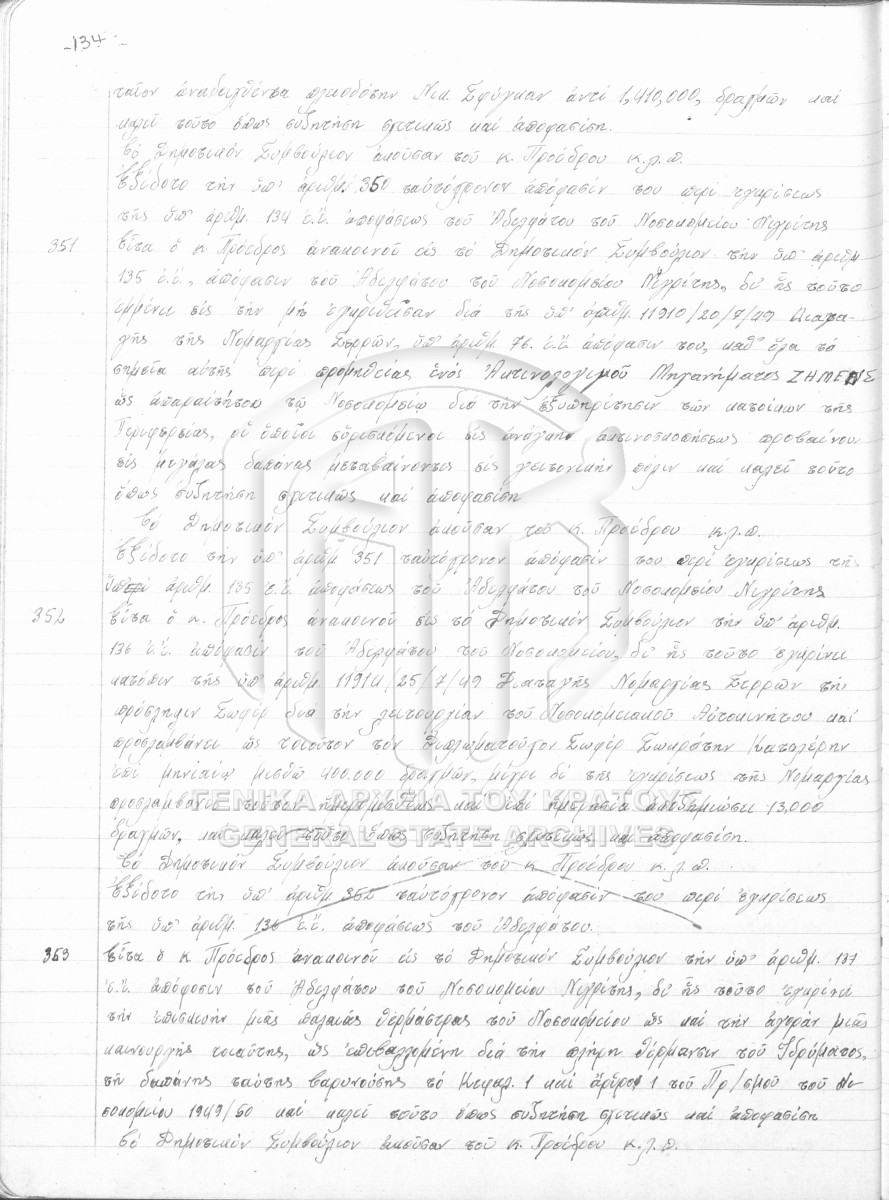 -134-
ταῖον ἀναδειχθέντα πλειοδότην Νικ. Σφύγκαν ἀντί 1,410,000, δραχμῶν καί
καλεῖ τοῦτο ὅπως συζητήση σχετικῶς καί ἀποφασίση.
Τό Δημοτικόν Συμβούλιον ἀκοῦσαν τοῦ κ. Προέδρου κ.λ.π.
Ἐξέδοτο τήν ὑπ' ἀριθμ. 350 ταὐτόχρονον ἀπόφασίν του περί ἐγκρίσεως
τῆς ὑπ' ἀριθμ. 134 ἐ.ἔ. ἀποφάσεως τοῦ Ἀδελφάτου τοῦ Νοσοκομείου Νιγρίτης
351 Εἶτα ὁ κ. Πρόεδρος ἀνακοινοῖ εἰς τό Δημοτικόν Συμβούλιον τήν ὑπ' ἀριθμ
135 ἐ.ἔ., ἀπόφασιν τοῦ Ἀδελφάτου τοῦ Νοσοκομείου Νιγρίτης, δι' ἧς τοῦτο
ἐμμένει εἰς τήν μή ἐγκριθεῖσαν διά τῆς ὑπ' ἀριθμ. 11910/20/7/49 Διατα-
γῆς τῆς Νομαρχίας Σερρῶν, ὑπ' ἀριθμ. 76. ἐ.ἔ. ἀπόφασίν του, καθ' ὅλα τά
σημεῖα αὐτῆς περί προμηθείας ἑνός Ἀκτινολογικοῦ Μηχανήματος ΖΗΜΕΝΣ
ὡς ἀπαραιτήτου τῷ Νοσοκομείῳ διά τήν ἐξυπηρέτησιν τῶν κατοίκων τῆς
Περιφερείας, οἱ ὁποῖοι εὑρισκόμενοι εἰς ἀνάγκην ἀκτινοσκοπήσεως προβαίνουν
εἰς μεγάλας δαπάνας μεταβαίνοντες εἰς γειτονικήν πόλιν καί καλεῖ τοῦτο
ὅπως συζητήση σχετικῶς καί ἀποφασίση
Τό Δημοτικόν Συμβούλιον ἀκοῦσαν τοῦ κ. Προέδρου κ.λ.π.
Ἐξέδοτο τήν ὑπ' ἀριθμ 351 ταὐτόχρονον ἀπόφασίν του περί ἐγκρίσεως τῆς
ὑπ' ἀριθμ. 135 ἐ.ἔ. ἀποφάσεως τοῦ Ἀδελφάτου τοῦ Νοσοκομείου Νιγρίτης
352 Εἶτα ὁ κ. Πρόεδρος ἀνακοινοῖ εἰς τό Δημοτικόν Συμβούλιον τήν ὑπ' ἀριθμ.
136 ἐ.ἔ. ἀπόφασιν τοῦ Ἀδελφάτου τοῦ Νοσοκομείου, δι' ἧς τοῦτο ἐγκρίνει
κατόπιν τῆς ὑπ' ἀριθμ. 11914/25/7/49 Διαταγῆς Νομαρχίας Σερρῶν τήν
πρόσληψιν Σωφέρ διά τήν λειτουργίαν τοῦ Νοσοκομειακοῦ Αὐτοκινήτου καί
προσλαμβάνει ὡς τοιοῦτον τόν Διπλωματοῦχον Σωφέρ Σωκράτην Καταλέρην
ἐπί μηνιαίῳ μισθῷ 400.000 δραχμῶν, μέχρι δέ τῆς ἐγκρίσεως τῆς Νομαρχίας
προσλαμβάνει τοῦτον ἡμερομισθίως καί ἐπί ἡμερησία ἀποζημιώσει 13,000
δραχμῶν, καί καλεῖ τοῦτο ὅπως συζητήση σχετικῶς καί ἀποφασίση.
Τό Δημοτικόν Συμβούλιον ἀκοῦσαν τοῦ κ. Προέδρου κ.λ.π.
Ἐξέδοτο τήν ὑπ' ἀριθμ 352 ταὐτόχρονον ἀπόφασίν του περί ἐγκρίσεως
τῆς ὑπ' ἀριθμ. 136 ἐ.ἔ. ἀποφάσεως τοῦ Ἀδελφάτου.
353 Εἶτα ὁ κ Πρόεδρος ἀνακοινοῖ εἰς τό Δημοτικόν Συμβούλιον τήν ὑπ' ἀριθμ. 137
ἐ.ἔ. ἀπόφασιν τοῦ Ἀδελφάτου τοῦ Νοσοκομείου Νιγρίτης, δι' ἧς τοῦτο ἐγκρίνει
τήν ἐπισκευήν μιᾶς παλαιᾶς θερμάστρας τοῦ Νοσοκομείου ὡς καί τήν ἀγοράν μιᾶς
καινουργῆς τοιαύτης, ὡς ἐπιβαλλομένη διά τήν πλήρη θέρμανσιν τοῦ Ἱδρύματος,
τῆς δαπάνης ταύτης βαρυνούσης τό Κεφαλ. 1 καί ἄρθρον 1 τοῦ Πρ/σμοῦ τοῦ Νο
σοκομείου 1949/50 καί καλεῖ τοῦτο ὅπως συζητήση σχετικῶς καί ἀποφασίση
Τό Δημοτικόν Συμβούλιον ἀκοῦσαν τοῦ κ. Προέδρου κ.λ.π.
ΓΕΝΙΚΑ ΑΡΧΕΙΑ ΤΟΥ ΚΡΑΤΟΥΣ
GENERAL STATE ARCHIVES